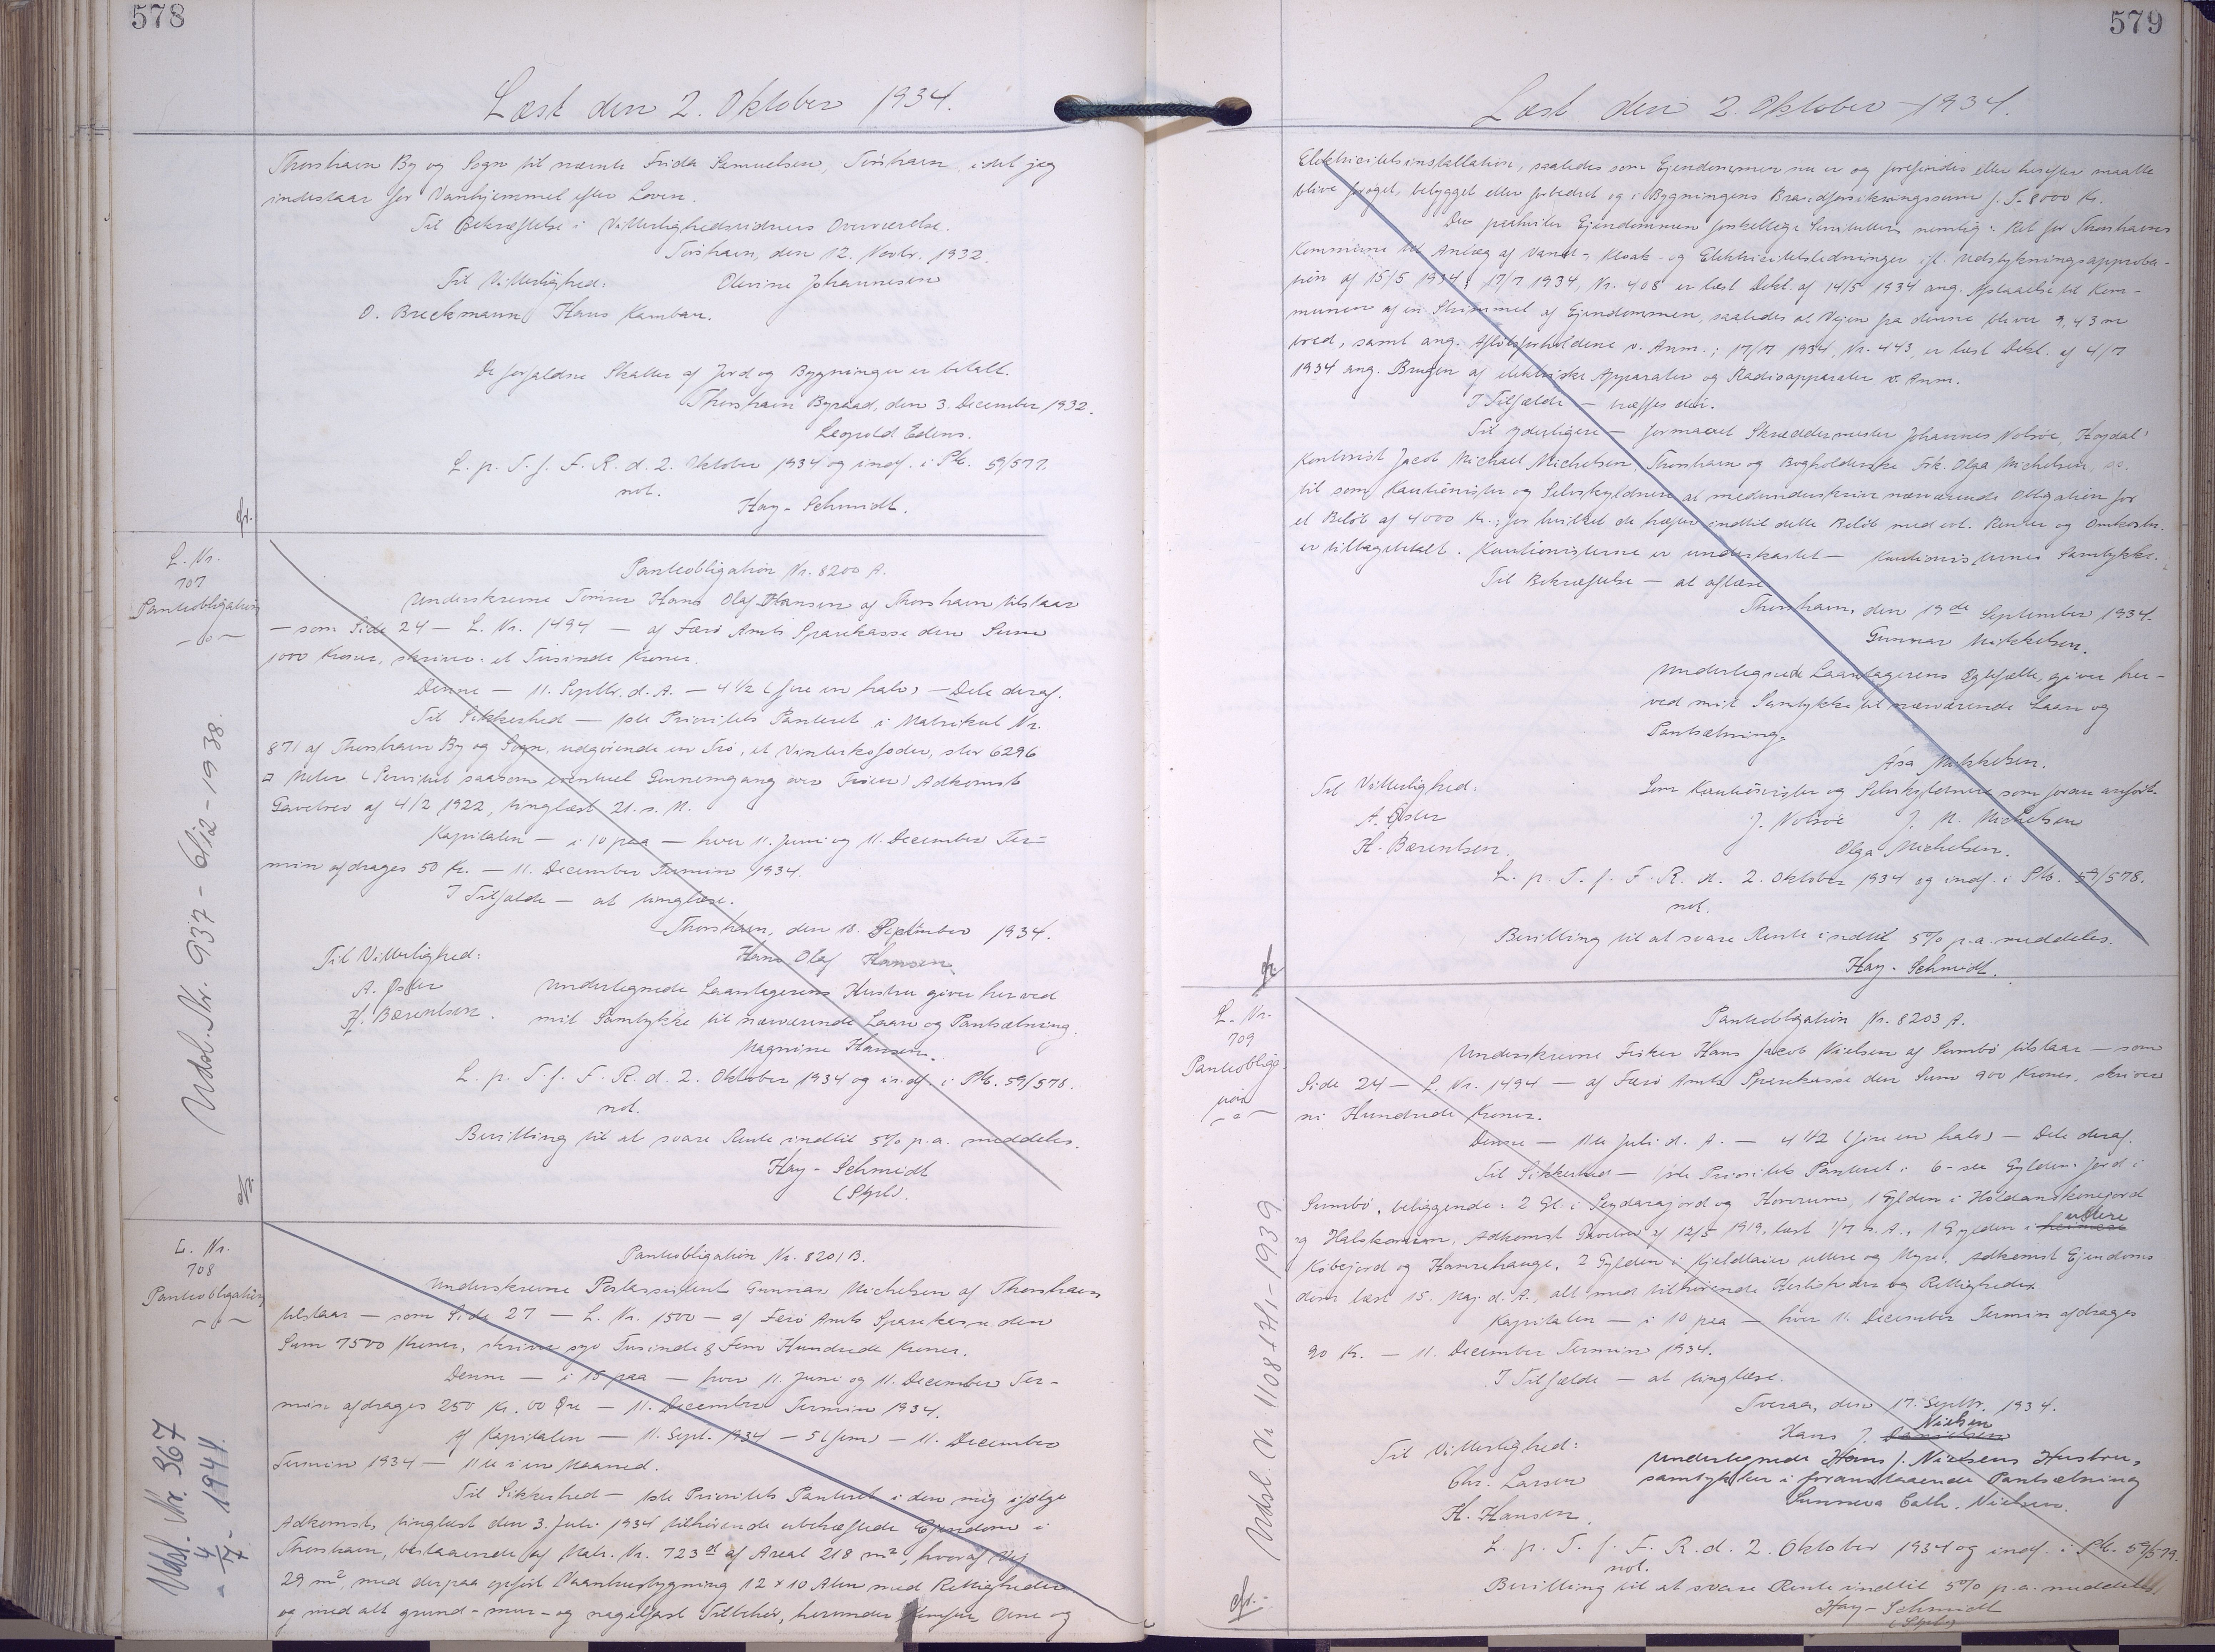 578
Læst den 2. Oktober 1934.
Thorshavn By og Sogn til nævnte Frida Samuelsen, Tórshavn, idet jeg
indestaar for Vanhjemmel efter Loven.
Til Bekræftelse i Vitterlighedsvidners Overværelse.
Tórshavn, den 12. Novbr. 1932.
Til Vitterlighed: Olevine Johannesen
O. Breckmann Hans Kamban.
De forfaldne Skatter af Jord og Bygninger er betalt.
Thorshavn Byraad, den 3. December 1932.
Leopold Edens.
L. p. T. f. F. R. d. 2. Oktober 1934 og indf. i Pb. 59/577.
not.
Hay-Schmidt.
cfr.
L. Nr.
707
Panteobligation
Udsl. Nr. 937 - 6/12 - 1938.
Panteobligation Nr. 8200 A.
Underskrevne Tømrer Hans Olaf Hansen af Thorshavn tilstaar
— som Side 24 — L. Nr. 1494 — af Færø Amts Sparekasse den Sum
1000 Kroner, skriver et Tusinde Kroner.
Denne — 11. Septbr. d. A. — 4 1/2 (fire en halv) — Dele deraf.
Til Sikkerhed — 1ste Prioritets Panteret i Matrikul Nr.
871 af Thorshavn By og Sogn, udgørende en Trø, et Vinterkofoder, stor 6296
□ Meter (Servitut saasom eventuel Gennemgang over Trøen) Adkomst
Gavebrev af 4/2 1922, tinglæst 21. s. M.
Kapitalen — i 10 paa — hver 11. Juni og 11. December Ter-
min afdrages 50 Kr. — 11. December Termin 1934.
I Tilfælde — at tinglæse.
Thorshavn, den 18. September 1934.
Til Vitterlighed: Hans Olaf Hansen
A. Øster Undertegnede Laantagerens Hustru giver herved
H. Bærentsen. mit Samtykke til nærværende Laan og Pantsætning.
Magnine Hansen.
L. p. T. f. F. R. d. 2. Oktober 1934 og indf. i Pb. 59/578.
not.
Bevilling til at svare Rente indtil 5% p.a. meddeles.
Hay-Schmidt
cfr.
L. Nr.
708
Panteobligation
Udsl. Nr. 367
- 4/7 - 1944.
Panteobligation Nr. 8201 B.
Underskrevne Postassistent Gunnar Michelsen af Thorshavn
tilstaar — som Side 27 — L. Nr. 1500 — af Færø Amts Sparekasse den
Sum 7500 Kroner, skriver syv Tusinde & Fem Hundrede Kroner.
Denne — i 15 paa — hver 11. Juni og 11. December Ter-
min afdrages 250 Kr. 00 Øre — 11. December Termin 1934.
Af Kapitalen — 11. Sept. 1934 — 5 (fem) — 11. December
Termin 1934 — 11te i en Maaned.
Til Sikkerhed — 1ste Prioritets Panteret i den mig ifølge
Adkomst, tinglæst den 3. Juli 1934 tilhørende ubehæftede Ejendom i
Thorshavn, bestaaende af Matr. Nr. 723 af Areal 218 m², hvoraf Vej
29 m², med derpaa opført Vaanhusbygning 12 x 10 Alen med Rettigheder
og med alt grund- mur- og nagelfast Tilbehør, herunder Komfur, Ovne og
579
Læst den 2. Oktober 1934.
Elektricitetsinstallation, saaledes som Ejendommen nu er og forefindes eller herefter maatte
blive forøget, bebygget eller forbedret og i Bygningens Brandforsikringssum f. T. 8000 Kr.
Der paahviler Ejendommen forskellige Servitutter, nemlig: Ret for Thorshavns
Kommune til Anlæg af Vand-, Kloak- og Elektricitetsledninger ifl. Udstykningsapproba-
tion af 15/5 1934 & 17/7 1934, Nr. 408 er læst Dekl. af 14/5 1934 ang. Afstaaelse til Kom-
munen af en Strimmel af Ejendommen, saaledes at Vejen fra denne bliver 9,43 m
bred, samt ang. Afløbsforholdene v. Anm.; 17/7 1934, Nr. 443, er læst Dekl. af 4/7
1934 ang. Brugen af elektriske Apparater og Radioapparater v. Anm.
I Tilfælde — træffes der.
Til yderligere — formaaet Skræddermester Johannes Nolsøe, Hoydal
Kontorist Jacob Michael Michelsen, Thorshavn og Bogholderske Frk. Olga Michelsen,
til som Kautionister og Selvskyldnere at medunderskrive nærværende Obligation for
et Beløb af 4000 Kr., for hvilket de hæfter indtil dette Beløb med evt. Renter og Omkostn.
er tilbagebetalt. Kautionisterne er underkastet — Kautionisternes Samtykke.
Til Bekræftelse — at aflæse
Thorshavn, den 19de September 1934.
Gunnar Mikkelsen.
Undertegnede Laantagerens Egtefælle, giver her-
ved mit Samtykke til nærværende Laan og
Pantsætning.
Ása Mikkelsen.
Til Vitterlighed: Som Kautionister og Selvskyldnere som foran anført.
A. Øster J. Nolsøe J. M. Michelsen
H. Bærentsen. Olga Michelsen.
L. p. T. f. F. R. d. 2. Oktober 1934 og indf. i Pb. 59/578.
not.
Bevilling til at svare Rente indtil 5% p.a. meddeles.
Hay-Schmidt.
cfr.
L. Nr.
709
Panteobliga-
tion
Udsl. Nr. 1108 - 17/1 - 1939
Panteobligation Nr. 8203 A.
Underskrevne Fisker Hans Jacob Nielsen af Sumbø tilstaar — som
Side 24 — L. Nr. 1494 — af Færø Amts Sparekasse den Sum 900 Kroner, skriver
ni Hundrede Kroner.
Denne — 11te Juli d. A. — 4 1/2 (fire en halv) — Dele deraf.
Til Sikkerhed — 1ste Prioritets Panteret i 6-seks Gylden Jord i
Sumbø, beliggende: 2 Gl. i Seydarajord og Hovrum, 1 Gylden i Holdanskonejord
og Halskonum, Adkomst Gavebrev af 12/5 1919, læst 1/7 s. A., 1 Gylden i ydere
Købejord og Hamrehauge, 2 Gylden i Kjeldlaier uttere og Myre, Adkomst Ejendoms
dom læst 15. Maj d. A., alt med tilhørende Herligheder og Rettigheder.
Kapitalen — i 10 paa — hver 11. December Termin afdrages
90 Kr. — 11. December Termin 1934.
I Tilfælde — at tinglæse.
Tveraa, den 17. Septbr. 1934.
Hans J. Nielsen
Til Vitterlighed: Undertegnede Hans J. Nielsens Hustru,
Chr. Larsen samtykker i foranstaaende Pantsætning
H. Hansen. Sunneva Cath. Nielsen.
L. p. T. f. F. R. d. 2. Oktober 1934 og indf. i Pb. 59/579.
not.
Bevilling til at svare Rente indtil 5% p.a. meddeles.
Hay-Schmidt
cfr.